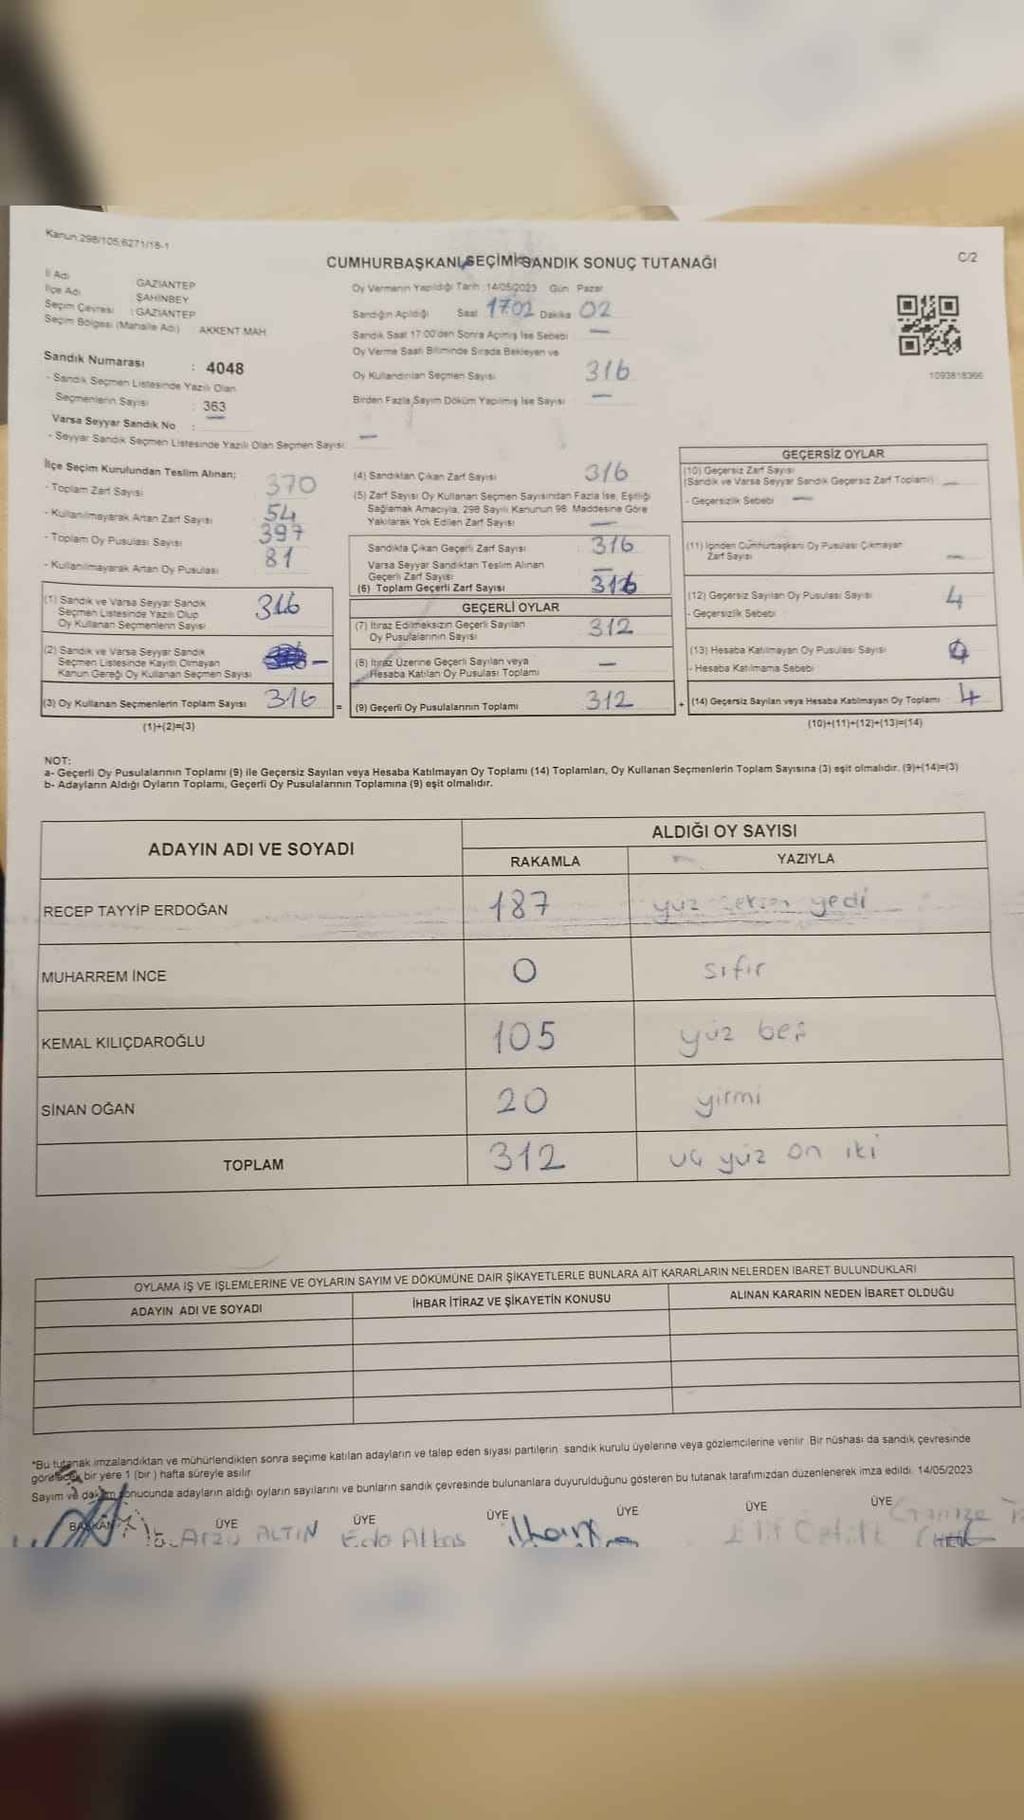 Kanun.298/105,6271/18-1
CUMHURBAŞKANI SEÇİMİ SANDIK SONUÇ TUTANAĞI
C/2
İl Adı
GAZİANTEP
İlçe Adı
ŞAHİNBEY
Seçim Çevresi : GAZİANTEP
Seçim Bölgesi (Mahalle Adı) AKKENT MAH
Sandık Numarası : 4048
- Sandık Seçmen Listesinde Yazılı Olan
Seçmenlerin Sayısı 363
Varsa Seyyar Sandık No :
- Seyyar Sandık Seçmen Listesinde Yazılı Olan Seçmen Sayısı: —
Oy Vermenin Yapıldığı Tarih :14/05/2023 Gün Pazar
Sandığın Açıldığı Saat 1702 Dakika 02
Sandık Saat 17:00'den Sonra Açılmış İse Sebebi —
Oy Verme Saati Bitiminde Sırada Bekleyen ve
Oy Kullandırılan Seçmen Sayısı 316
Birden Fazla Sayım Döküm Yapılmış İse Sayısı —
1093818366
İlçe Seçim Kurulundan Teslim Alınan;
- Toplam Zarf Sayısı 370
- Kullanılmayarak Artan Zarf Sayısı 54
- Toplam Oy Pusulası Sayısı 397
- Kullanılmayarak Artan Oy Pusulası 81
(1) Sandık ve Varsa Seyyar Sandık
Seçmen Listesinde Yazılı Olup
Oy Kullanan Seçmenlerin Sayısı 316
(2) Sandık ve Varsa Seyyar Sandık
Seçmen Listesinde Kayıtlı Olmayan
Kanun Gereği Oy Kullanan Seçmen Sayısı —
(3) Oy Kullanan Seçmenlerin Toplam Sayısı 316 =
(1)+(2)=(3)
(4) Sandıktan Çıkan Zarf Sayısı 316
(5) Zarf Sayısı Oy Kullanan Seçmen Sayısından Fazla İse, Eşitliği
Sağlamak Amacıyla, 298 Sayılı Kanunun 98. Maddesine Göre
Yakılarak Yok Edilen Zarf Sayısı —
Sandıkta Çıkan Geçerli Zarf Sayısı 316
Varsa Seyyar Sandıktan Teslim Alınan
Geçerli Zarf Sayısı —
(6) Toplam Geçerli Zarf Sayısı 316
GEÇERLİ OYLAR
(7) İtiraz Edilmeksizin Geçerli Sayılan
Oy Pusulalarının Sayısı 312
(8) İtiraz Üzerine Geçerli Sayılan veya
Hesaba Katılan Oy Pusulası Toplamı —
(9) Geçerli Oy Pusulalarının Toplamı 312 +
GEÇERSİZ OYLAR
(10) Geçersiz Zarf Sayısı
(Sandık ve Varsa Seyyar Sandık Geçersiz Zarf Toplamı) —
- Geçersizlik Sebebi —
(11) İçinden Cumhurbaşkanı Oy Pusulası Çıkmayan
Zarf Sayısı —
(12) Geçersiz Sayılan Oy Pusulası Sayısı 4
- Geçersizlik Sebebi
(13) Hesaba Katılmayan Oy Pusulası Sayısı
- Hesaba Katılmama Sebebi
(14) Geçersiz Sayılan veya Hesaba Katılmayan Oy Toplamı 4
(10)+(11)+(12)+(13)=(14)
NOT:
a- Geçerli Oy Pusulalarının Toplamı (9) ile Geçersiz Sayılan veya Hesaba Katılmayan Oy Toplamı (14) Toplamları, Oy Kullanan Seçmenlerin Toplam Sayısına (3) eşit olmalıdır. (9)+(14)=(3)
b- Adayların Aldığı Oyların Toplamı, Geçerli Oy Pusulalarının Toplamına (9) eşit olmalıdır.
ADAYIN ADI VE SOYADI
ALDIĞI OY SAYISI
RAKAMLA
YAZIYLA
RECEP TAYYİP ERDOĞAN 187 yüz seksen yedi
MUHARREM İNCE 0 sıfır
KEMAL KILIÇDAROĞLU 105 yüz beş
SİNAN OĞAN 20 yirmi
TOPLAM 312 üç yüz on iki
OYLAMA İŞ VE İŞLEMLERİNE VE OYLARIN SAYIM VE DÖKÜMÜNE DAİR ŞİKAYETLERLE BUNLARA AİT KARARLARIN NELERDEN İBARET BULUNDUKLARI
ADAYIN ADI VE SOYADI
İHBAR İTİRAZ VE ŞİKAYETİN KONUSU
ALINAN KARARIN NEDEN İBARET OLDUĞU
*Bu tutanak imzalandıktan ve mühürlendikten sonra seçime katılan adayların ve talep eden siyasi partilerin sandık kurulu üyelerine veya gözlemcilerine verilir. Bir nüshası da sandık çevresinde
görülecek bir yere 1 (bir) hafta süreyle asılır.
Sayım ve döküm sonucunda adayların aldığı oyların sayılarını ve bunların sandık çevresinde bulunanlara duyurulduğunu gösteren bu tutanak tarafımızdan düzenlenerek imza edildi. 14/05/2023
BAŞKAN ÜYE ÜYE ÜYE ÜYE ÜYE ÜYE
Arzu ALTIN